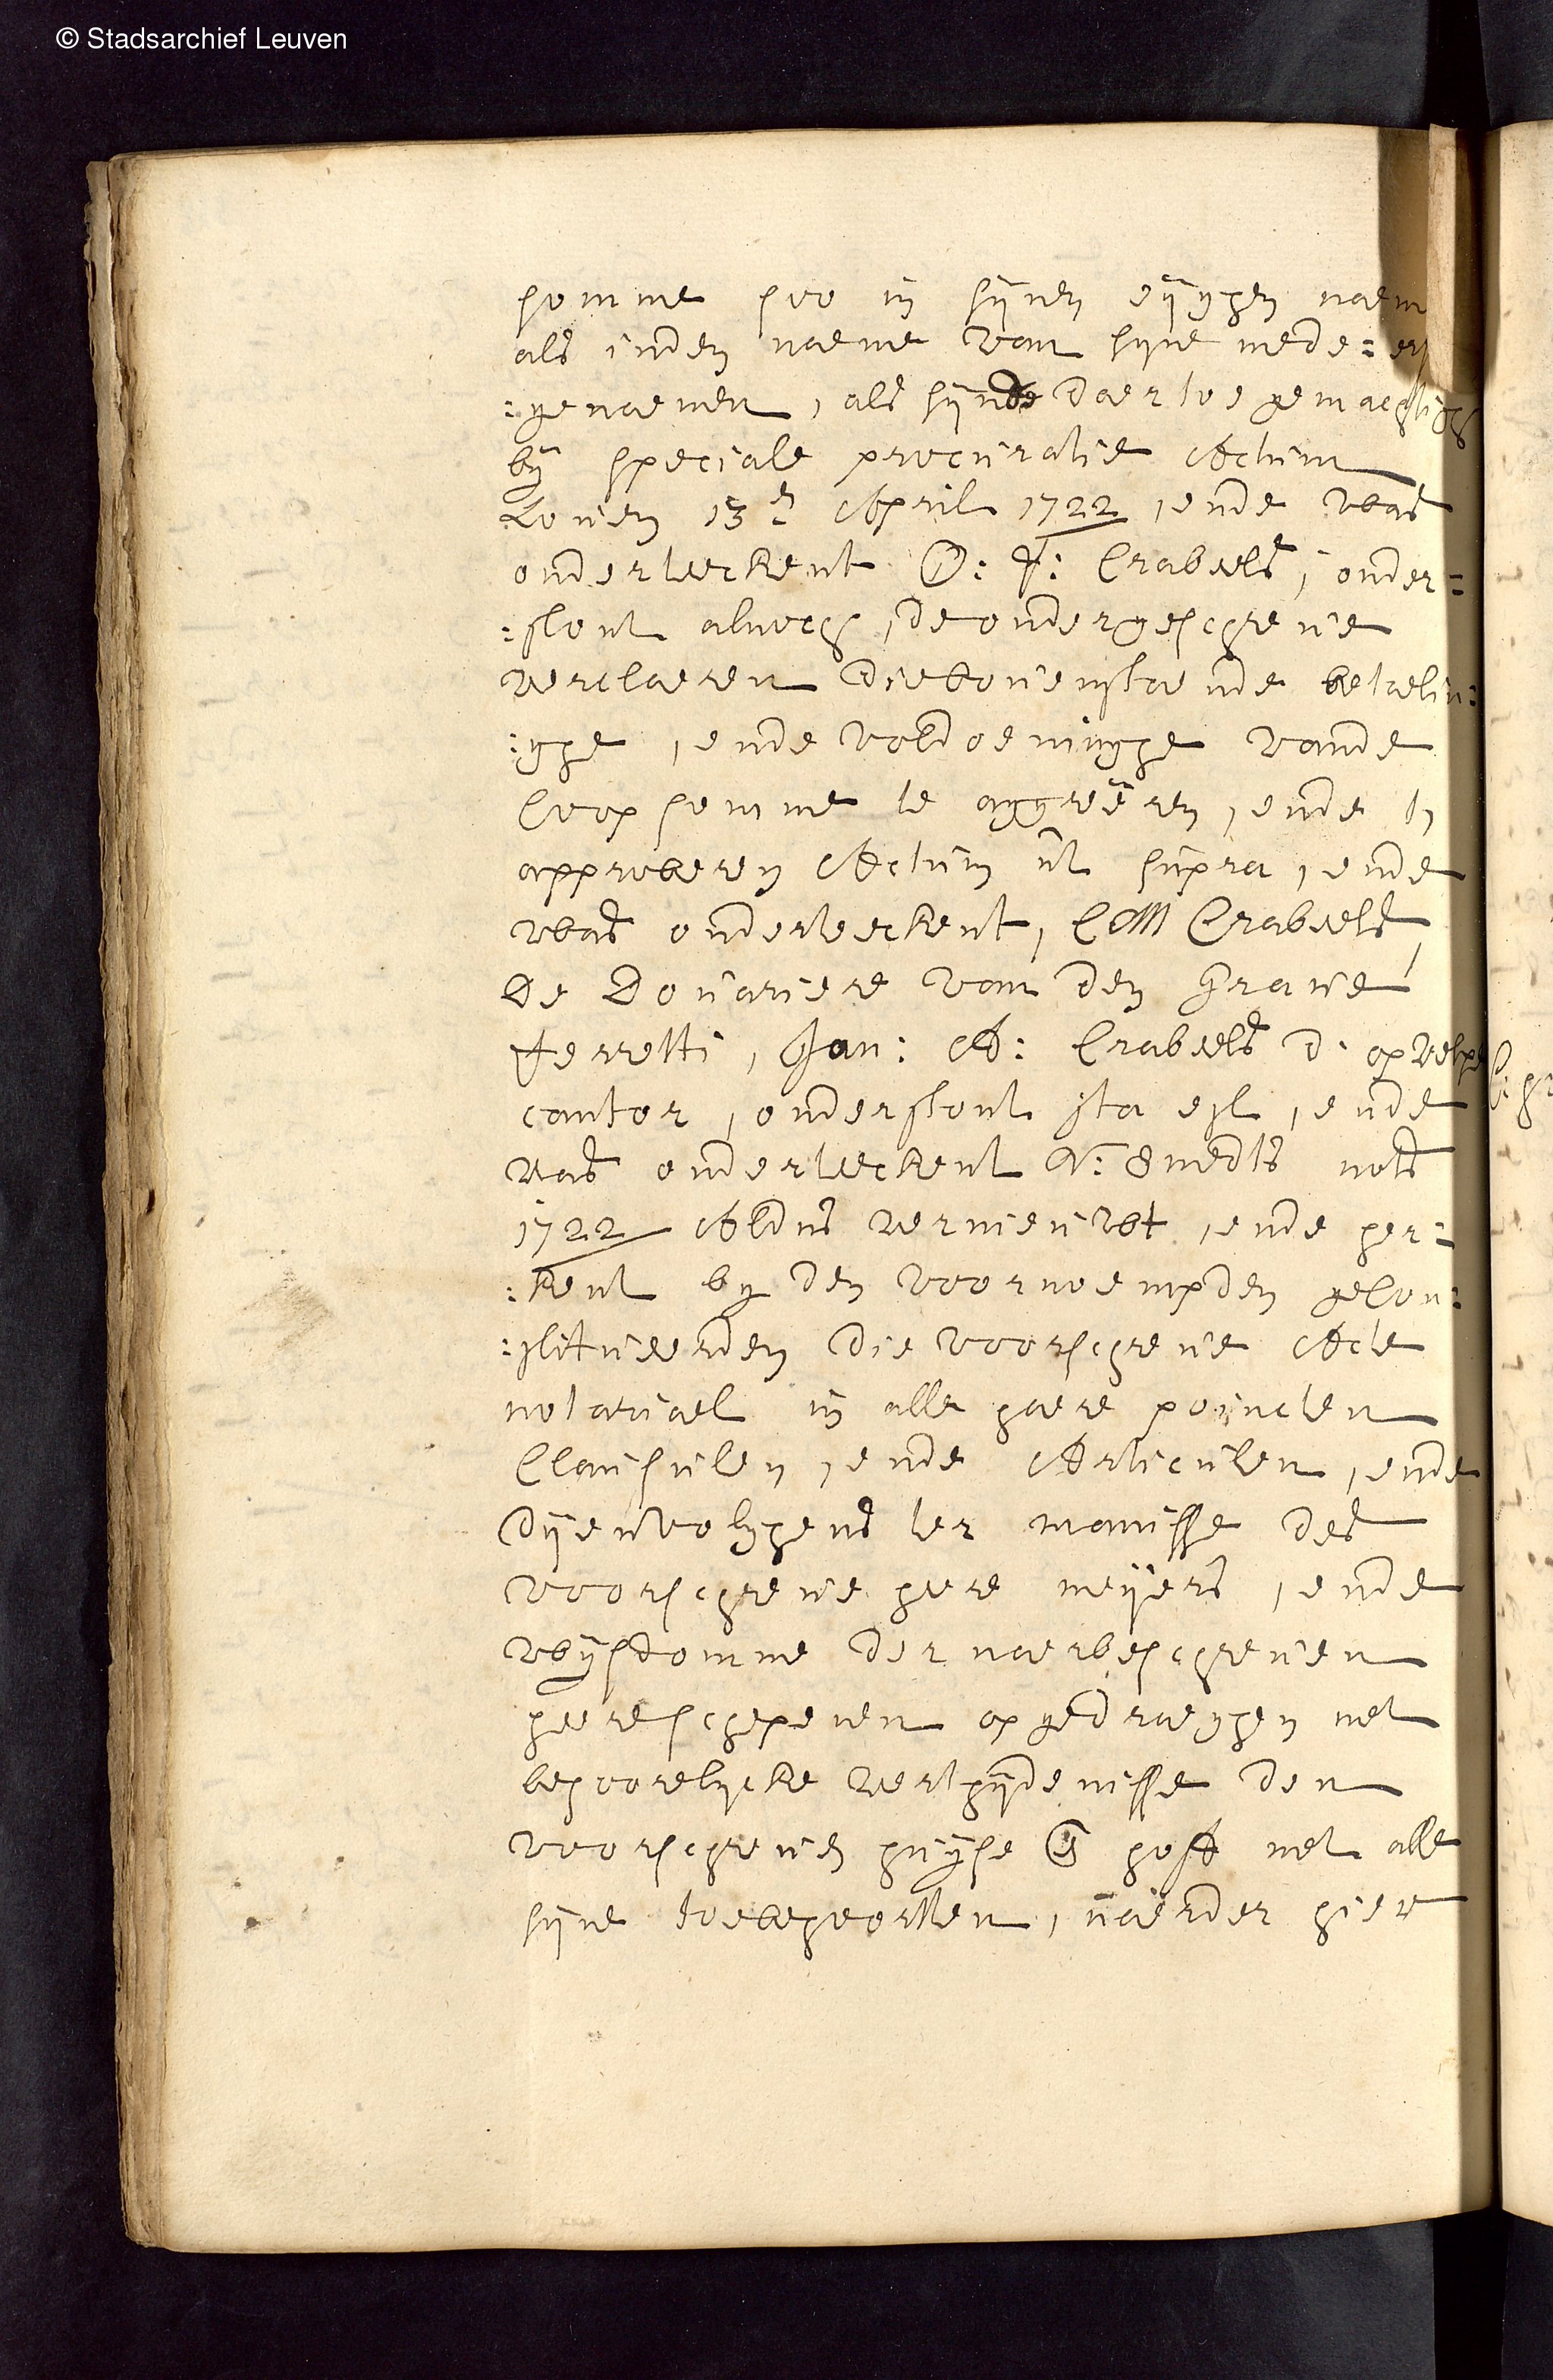 © Stadsarchief Leuven
somme soo in sijnen eijgen naem
als inden naeme van sijne mede: er
:genaemen, als sijnde daertoe gemachtigh
bij speciale procuratie Actum
Loven 13en April 1722, ende was
onderteeckent P: F: Crabeels, onder:
:stont alnoch, de ondergeschreve
verclaeren die bovenstaende betaelin:
:ghe, ende voldoeninghe vande
coopsomme te aggreëren, ende te
approberen Actum ut supra, ende
was onderteeckent, CM Crabeels,
De Douariere van den Grave
Ferretti, Jan: A: Crabeels d'opvelpe
cantor, onderstont ita est, ende
was onderteeckent N: Smedts nots
1722 Aldus vernieuwt, ende her:
:kent by den voornoempden gecon:
:stitueerden die voorschreve Acte
notariael in alle haere poincten
Clausulen, ende Articulen, ende
dijenvolghens ter manisse des
voorschreve heere meijers, ende
wijsdomme der naerbeschreven
heere schepenen opgedraeghen met
behoorelijcke verthijdenisse den
voorschreven huijse en hoff met alle
sijne toebehoorten, naerder hier